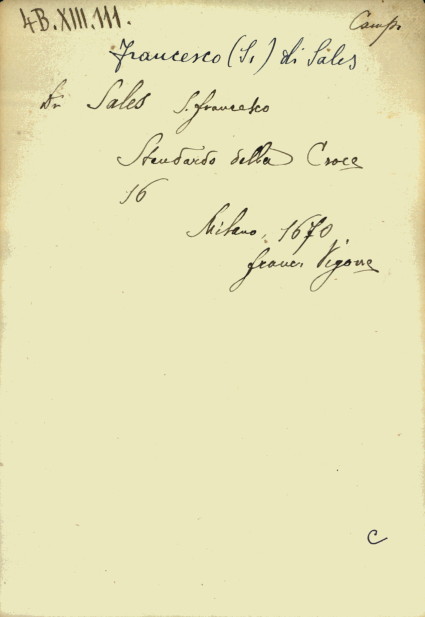 4B.XIII.111.
Camp.
Francesco (S.) di Sales
De Sales S. Francesco
Stendardo della Croce
16
Milano, 1670
franc. Vigone
C